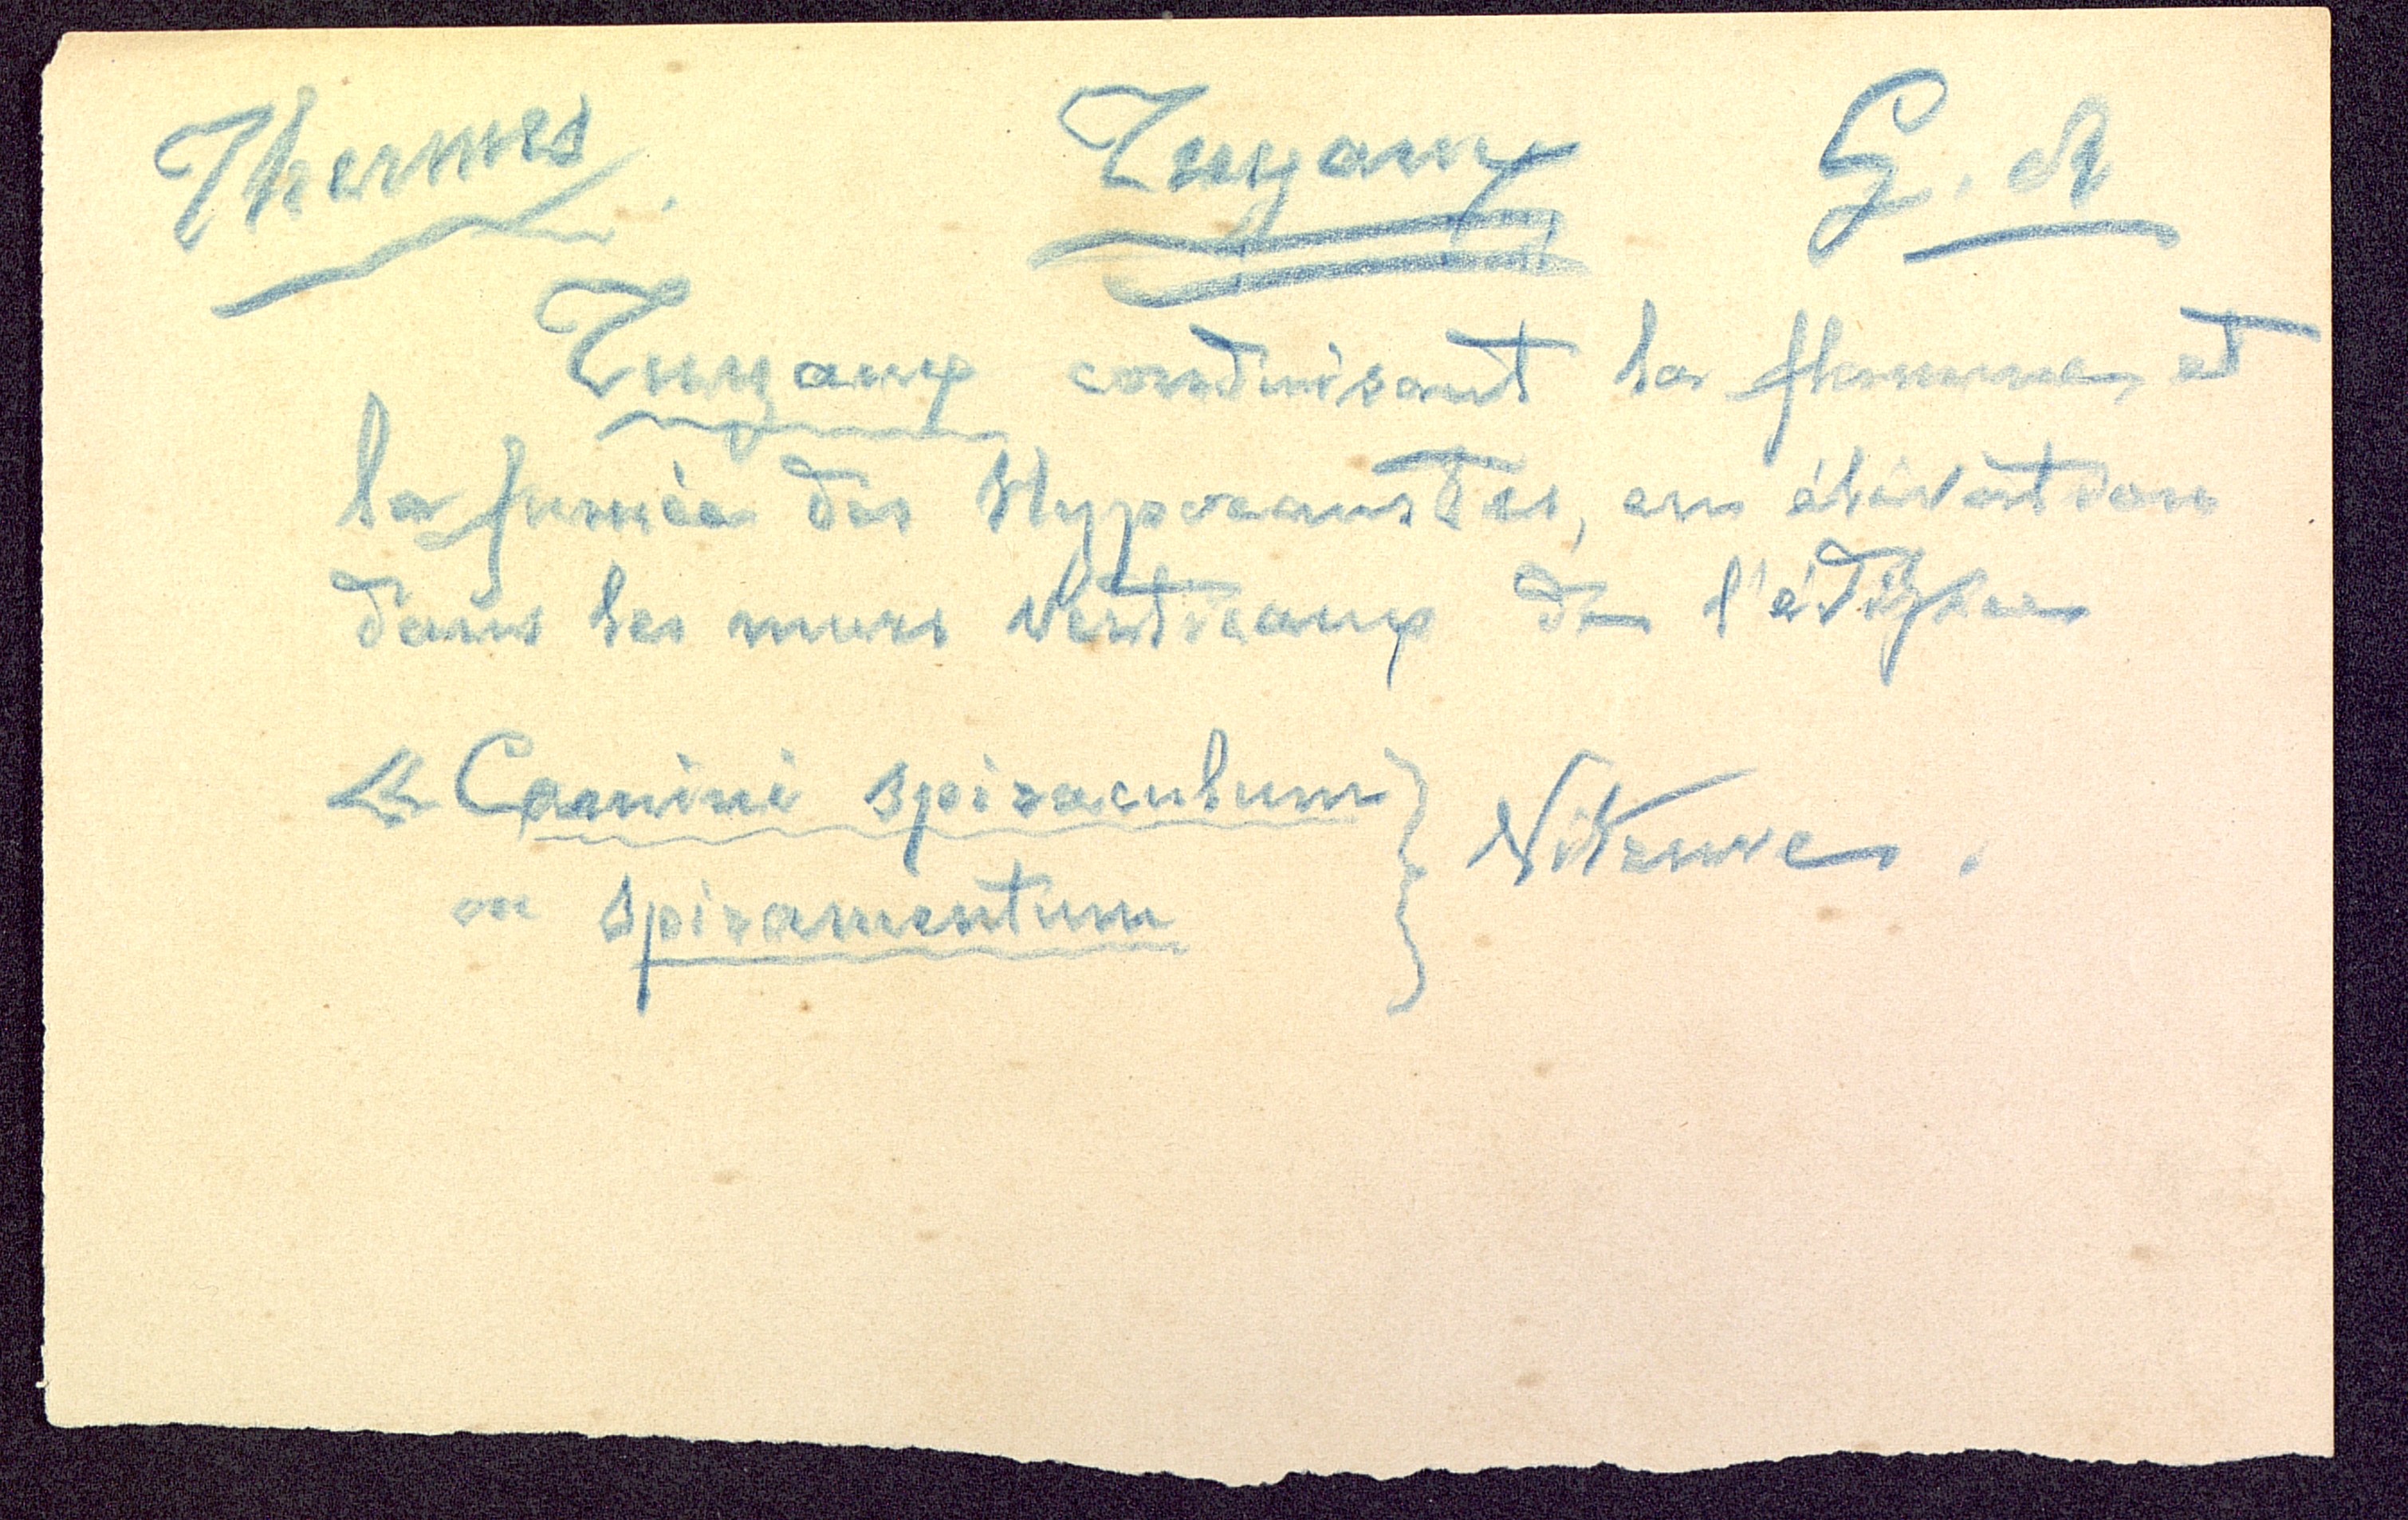 Thermes. Tuyaux G. A
Tuyaux conduisant la flamme et
la fumée des Hypocaustes, en élévation
dans les murs verticaux de l'édifice
Le Camini spiraculum
ou spiramentum } Vitruve.